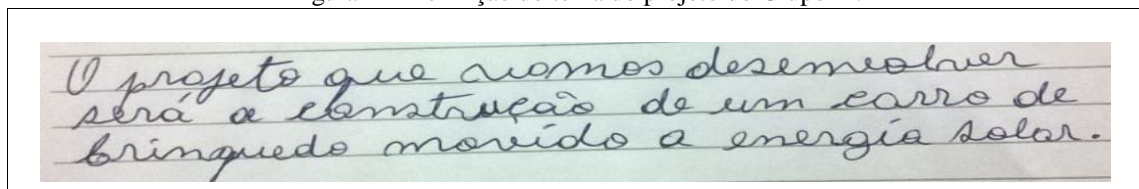 O projeto que vamos desenvolver
será a construção de um carro de
brinquedo movido a energia solar.